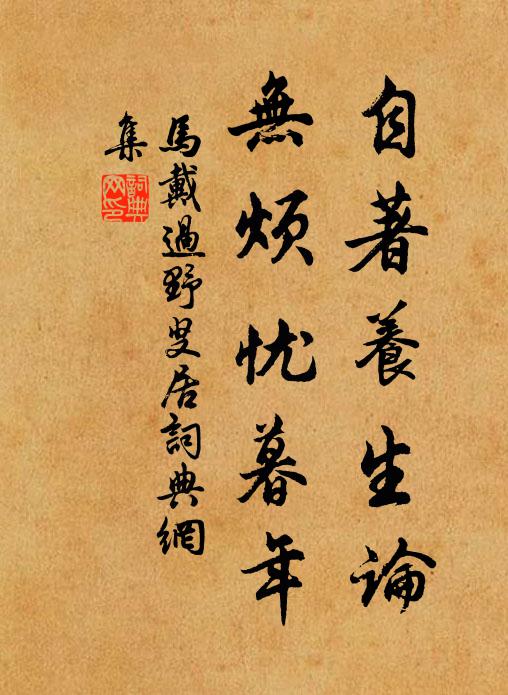 自著養生論
無煩忧暮年
馬戴過野叟居詞典網
集
詞典网印